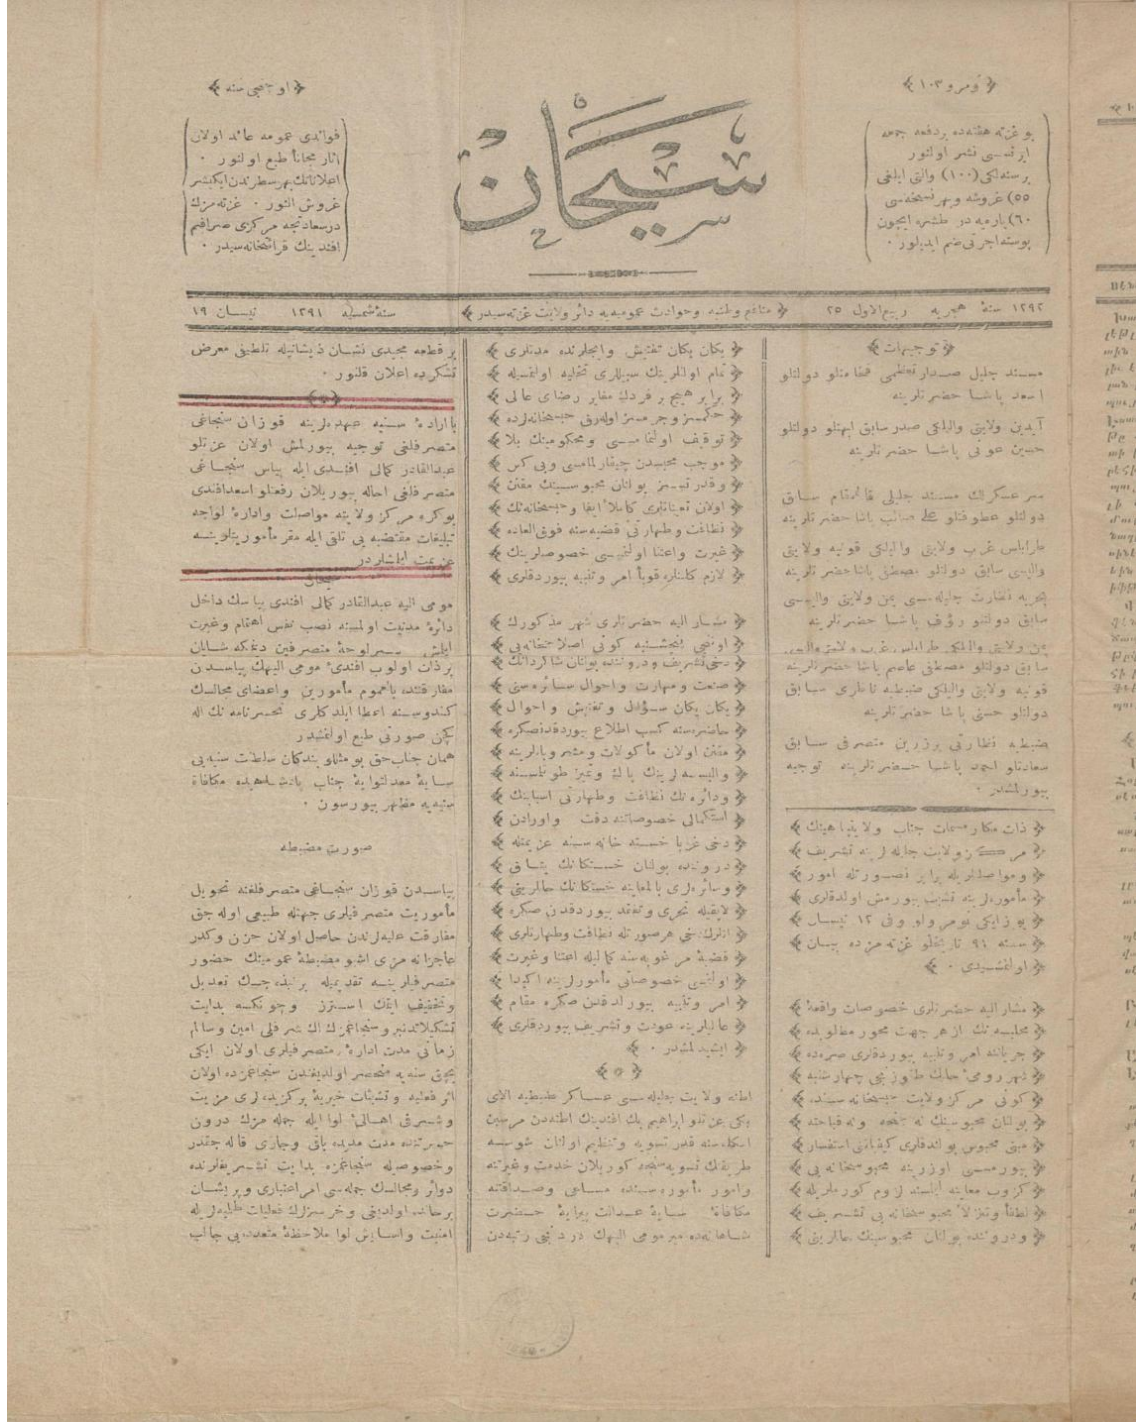 ﴿ نومرو ١٠٣ ﴾
بو غزته هفته‌ده بر دفعه جمعه
ایرتسی نشر اولنور
برسنه‌لكی (١٠٠) والتی ایلغی
٥٥) غروشه وبهر نسخه‌سی
٦٠) پاره‌یه در طشره ایچون
پوسته اجرتی ضم ایدیلور ٠
سیحان
﴿ اوچنجی سنه ﴾
فوائدی عمومه عائد اولان
اثار مجاناً طبع اولنور ٠
اعلاناتك بهر سطرندن ایكیشر
غروش النور ٠ غزته‌مزك
درسعادتجه مركزی صرافیم
افندینك قرائتخانه‌سیدر ٠
١٢٩٢ سنهٔ هجریه ربیع الاول ٢٥
﴿ منافع وطنیه وحوادث عمومیه‌یه دائر ولایت غزته‌سیدر ﴾
سنهٔ شمسیه ١٢٩١ نیسان ١٩
﴿ توجیهات ﴾
مسند جلیل صدارتعظمی فخامتلو دولتلو
اسعد پاشا حضرتلرینه
آیدین ولایتی والیلكی صدر سابق ابهتلو دولتلو
حسین عونی پاشا حضرتلرینه
سر عسكرلك مسند جلیلی قائمقام سابق
دولتلو عطوفتلو علی صائب پاشا حضرتلرینه
طرابلس غرب ولایتی والیلكی قونیه ولایتی
والیسی سابق دولتلو مصطفی پاشا حضرتلرینه
بحریه نظارت جلیله‌سی یمن ولایتی والیسی
سابق دولتلو رؤف پاشا حضرتلرینه
یمن ولایتی والیلكی طرابلس غرب ولایتی والیسی
سابق دولتلو مصطفی عاصم پاشا حضرتلرینه
قونیه ولایتی والیلكی ضبطیه ناظری سابق
دولتلو حسنی پاشا حضرتلرینه
ضبطیه نظارتی پرزرین متصرفی سابق
سعادتلو احمد پاشا حضرتلرینه توجیه
بیورلمشدر ٠
﴿ ذات مكارمسمات جناب ولایتپناهینك ﴾
﴿ مركز ولایت جلیله‌لرینه تشریف ﴾
﴿ ومواصلتلریله برابر نصورتله امور ﴾
﴿ مأموره‌لرینه تشبث بیورمش اولدقلری ﴾
﴿ یوز ایكی نومرولو وفی ١٢ نیسان ﴾
﴿ سنه ٩١ تاریخلو غزته‌مزده بیان ﴾
﴿ اولنمشیدی ٠ ﴾
﴿ مشار الیه حضرتلری خصوصات واقعهٔ ﴾
﴿ محلیه‌نك از هر جهت محور مطلوبده ﴾
﴿ جریاننه امر وتنبیه بیوردقلری صره‌ده ﴾
﴿ شهر رومیٔ حالك طقوزنجی چهارشنبه ﴾
﴿ كونی مركز ولایت حبسخانه‌سنده ﴾
﴿ بولنان محبوسینك نه جنحه ونه قباحته ﴾
﴿ مبنی محبوس بولندقلری كیفیاتنی استفسار ﴾
﴿ بیورمسی اوزرینه محبوسخانه‌یی ﴾
﴿ كزوب معاینه ایلمسنه لزوم كورملریله ﴾
﴿ لطفاً وتنزلاً محبوسخانه‌یی تشریف ﴾
﴿ ودروننده بولنان محبوسینك حاللرینی ﴾
﴿ یكان یكان تفتیش وایچلرنده مدتلری ﴾
﴿ تمام اولنلرینك سبیللری تخلیه اولنمسیله ﴾
﴿ برابر هیچ بر فردك مغایر رضای عالی ﴾
﴿ حكمسز وجرمسز اوله‌رق حبسخانه‌لرده ﴾
﴿ توقیف اولنمامسی ومحكومینك بلا ﴾
﴿ موجب محبسدن چیقارلمامسی وبی كس ﴾
﴿ وقدرتسز بولنان محبوسینك مقنن ﴾
﴿ اولان تعیناتلری كاملاً ایفا وحبسخانه‌نك ﴾
﴿ نظافت وطهارتی قضیه‌سنه فوق العاده ﴾
﴿ غیرت واعتنا اولنمسی خصوصلرینك ﴾
﴿ لازم كلنلره قویاً امر وتنبیه بیوردقلری ﴾
﴿ مشار الیه حضرتلری شهر مذكورك ﴾
﴿ اوننجی پنجشنبه كونی اصلاحخانه‌یی ﴾
﴿ دخی تشریف ودروننده بولنان شاكردانك ﴾
﴿ صنعت ومهارت واحوال سائره‌سنی ﴾
﴿ یكان یكان سؤال وتفتیش واحوال ﴾
﴿ حاضره‌سنه كسب اطلاع بیوردقدنصكره ﴾
﴿ مقنن اولان مأكولات ومشروباتلرینه ﴾
﴿ والبسه‌لرینك پاك وتمیز طوتلمسنه ﴾
﴿ ودائره‌نك نظافت وطهارتی اسبابنك ﴾
﴿ استكمالی خصوصاتنه دقت واورادن ﴾
﴿ دخی غربا خسته خانه‌سنه عزیمتله ﴾
﴿ دروننده بولنان خستكانك یتاق ﴾
﴿ وسائره‌لری بالمعاینه خستكانك حاللرینی ﴾
﴿ لایقیله تحری وتفقد بیوردقدن صكره ﴾
﴿ انلرك دخی هر صورتله نظافت وطهارتلری ﴾
﴿ قضیهٔ مرغوبه‌سنه كمالیله اعتنا وغیرت ﴾
﴿ اولنمسی خصوصاتی مأمورلرینه اكیداً ﴾
﴿ امر وتنبیه بیورلدقدن صكره مقام ﴾
﴿ عالیلرینه عودت وتشریف بیوردقلری ﴾
﴿ ایشیدلمشدر ٠ ﴾
اطنه ولایت جلیله‌سی عساكر ضبطیه الای
بكی عزتلو ابراهیم بك افندینك اطنه‌دن مرسین
اسكله‌سنه قدر تسویه وتنظیم اولنان شوسه
طریقك تسویه‌سنجه كوریلان خدمت وغیرتنه
وامور مأموره‌سنده مساعی وصداقتنه
مكافاةً سایهٔ عدالت پیرایهٔ حضرت
شاهانه‌ده میر مومی الیهك دردنجی رتبه‌دن
بر قطعه مجیدی نشان ذیشانیله تلطیفی معرض
تشكرده اعلان قلنور ٠
با ارادهٔ سنیه عهده‌لرینه قوزان سنجاغی
متصرفلغی توجیه بیورلمش اولان عزتلو
عبدالقادر كمالی افندی ایله پیاس سنجاغی
متصرفلغی احاله بیوریلان رفعتلو اسعد افندی
بوكره مركز ولایته مواصلت وادارهٔ لواجه
تبلیغات مقتضیه‌یی تلقی ایله مقر مأموریتلرینه
عزیمت ایلمشلردر
سیحان
مومی الیه عبدالقادر كمالی افندی پیاسك داخل
دائرهٔ مدنیت اولمسنه نصب نفس اهتمام وغیرت
ایلمش سرلوحهٔ متصرفین دنمكه شایان
بر ذات اولوب افندیٔ مومی الیهك پیاسدن
مفارقتنده بالعموم مأمورین واعضای مجالسك
كندوسنه اعطا ایلدكلری محضرنامه‌نك اله
كچن صورتی طبع اولنمشدر
همان جناب حق بو مثللو بندكان سلطنت سنیه‌یی
سایهٔ معدلتوایهٔ جناب پادشاهیده مكافاة
سنیه‌یه مظهر بیورسون ٠
صورت مضبطه
پیاسدن قوزان سنجاغی متصرفلغنه تحویل
مأموریت متصرفیلری جهتله طبیعی اوله‌جق
مفارقت علیه‌لرندن حاصل اولان حزن وكدر
عاجزانه‌مزی اشبو مضبطهٔ عمومینك حضور
متصرفیلرینه تقدیمیله بر نبذه‌جك تعدیل
وتخفیف ایتمك استرز وچونكه بدایت
تشكیلاتدنبرو سنجاغمزك اك شرفلی امین وسالم
زمانی مدت ادارهٔ متصرفیلری اولان ایكی
بچق سنه‌یه منحصر اولدیغندن سنجاغمزده اولان
اثر فعلیه وتشبثات خیریهٔ بركزیده‌لری مزیت
وشرفی اهالیٔ لوا ایله جمله‌مزك درون
حمیرتنده مدت مدیده باقی وجاری قاله‌جقدر
وخصوصله سنجاغمزه بدایت تشریفلرنده
دوائر ومجالسك جمله‌سی امر اعتباری وپریشان
بر حالده اولدیغی وخرسزلرك فعلیات ظلمیه‌لریله
امنیت واسایش لوا ملاحظهٔ متعدده‌یی جالب